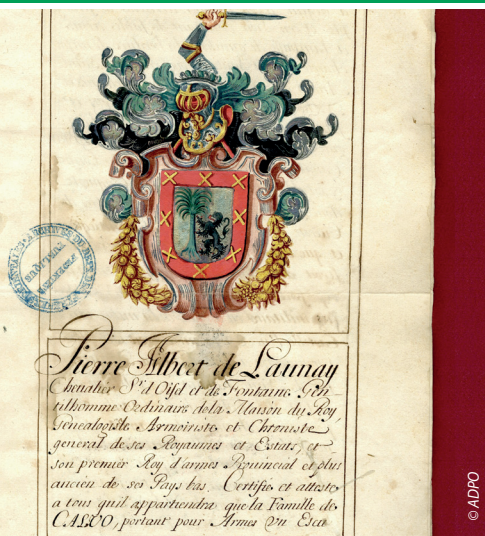 Pierre Albert de Launay
Chevalier Sr. d'Oisel et de Fontaine Gen-
tilhomme Ordinaire de la Maison du Roy,
Genealogiste Armoiriste et Chroniste
general de ses Royaumes et Estats, et
son premier Roy d'armes Provincial et plus
ancien de ses Pays bas, Certifie et atteste
a tous qu'il appartiendra que la Famille de
CALVO, portant pour Armes Un Escu
© ADPO